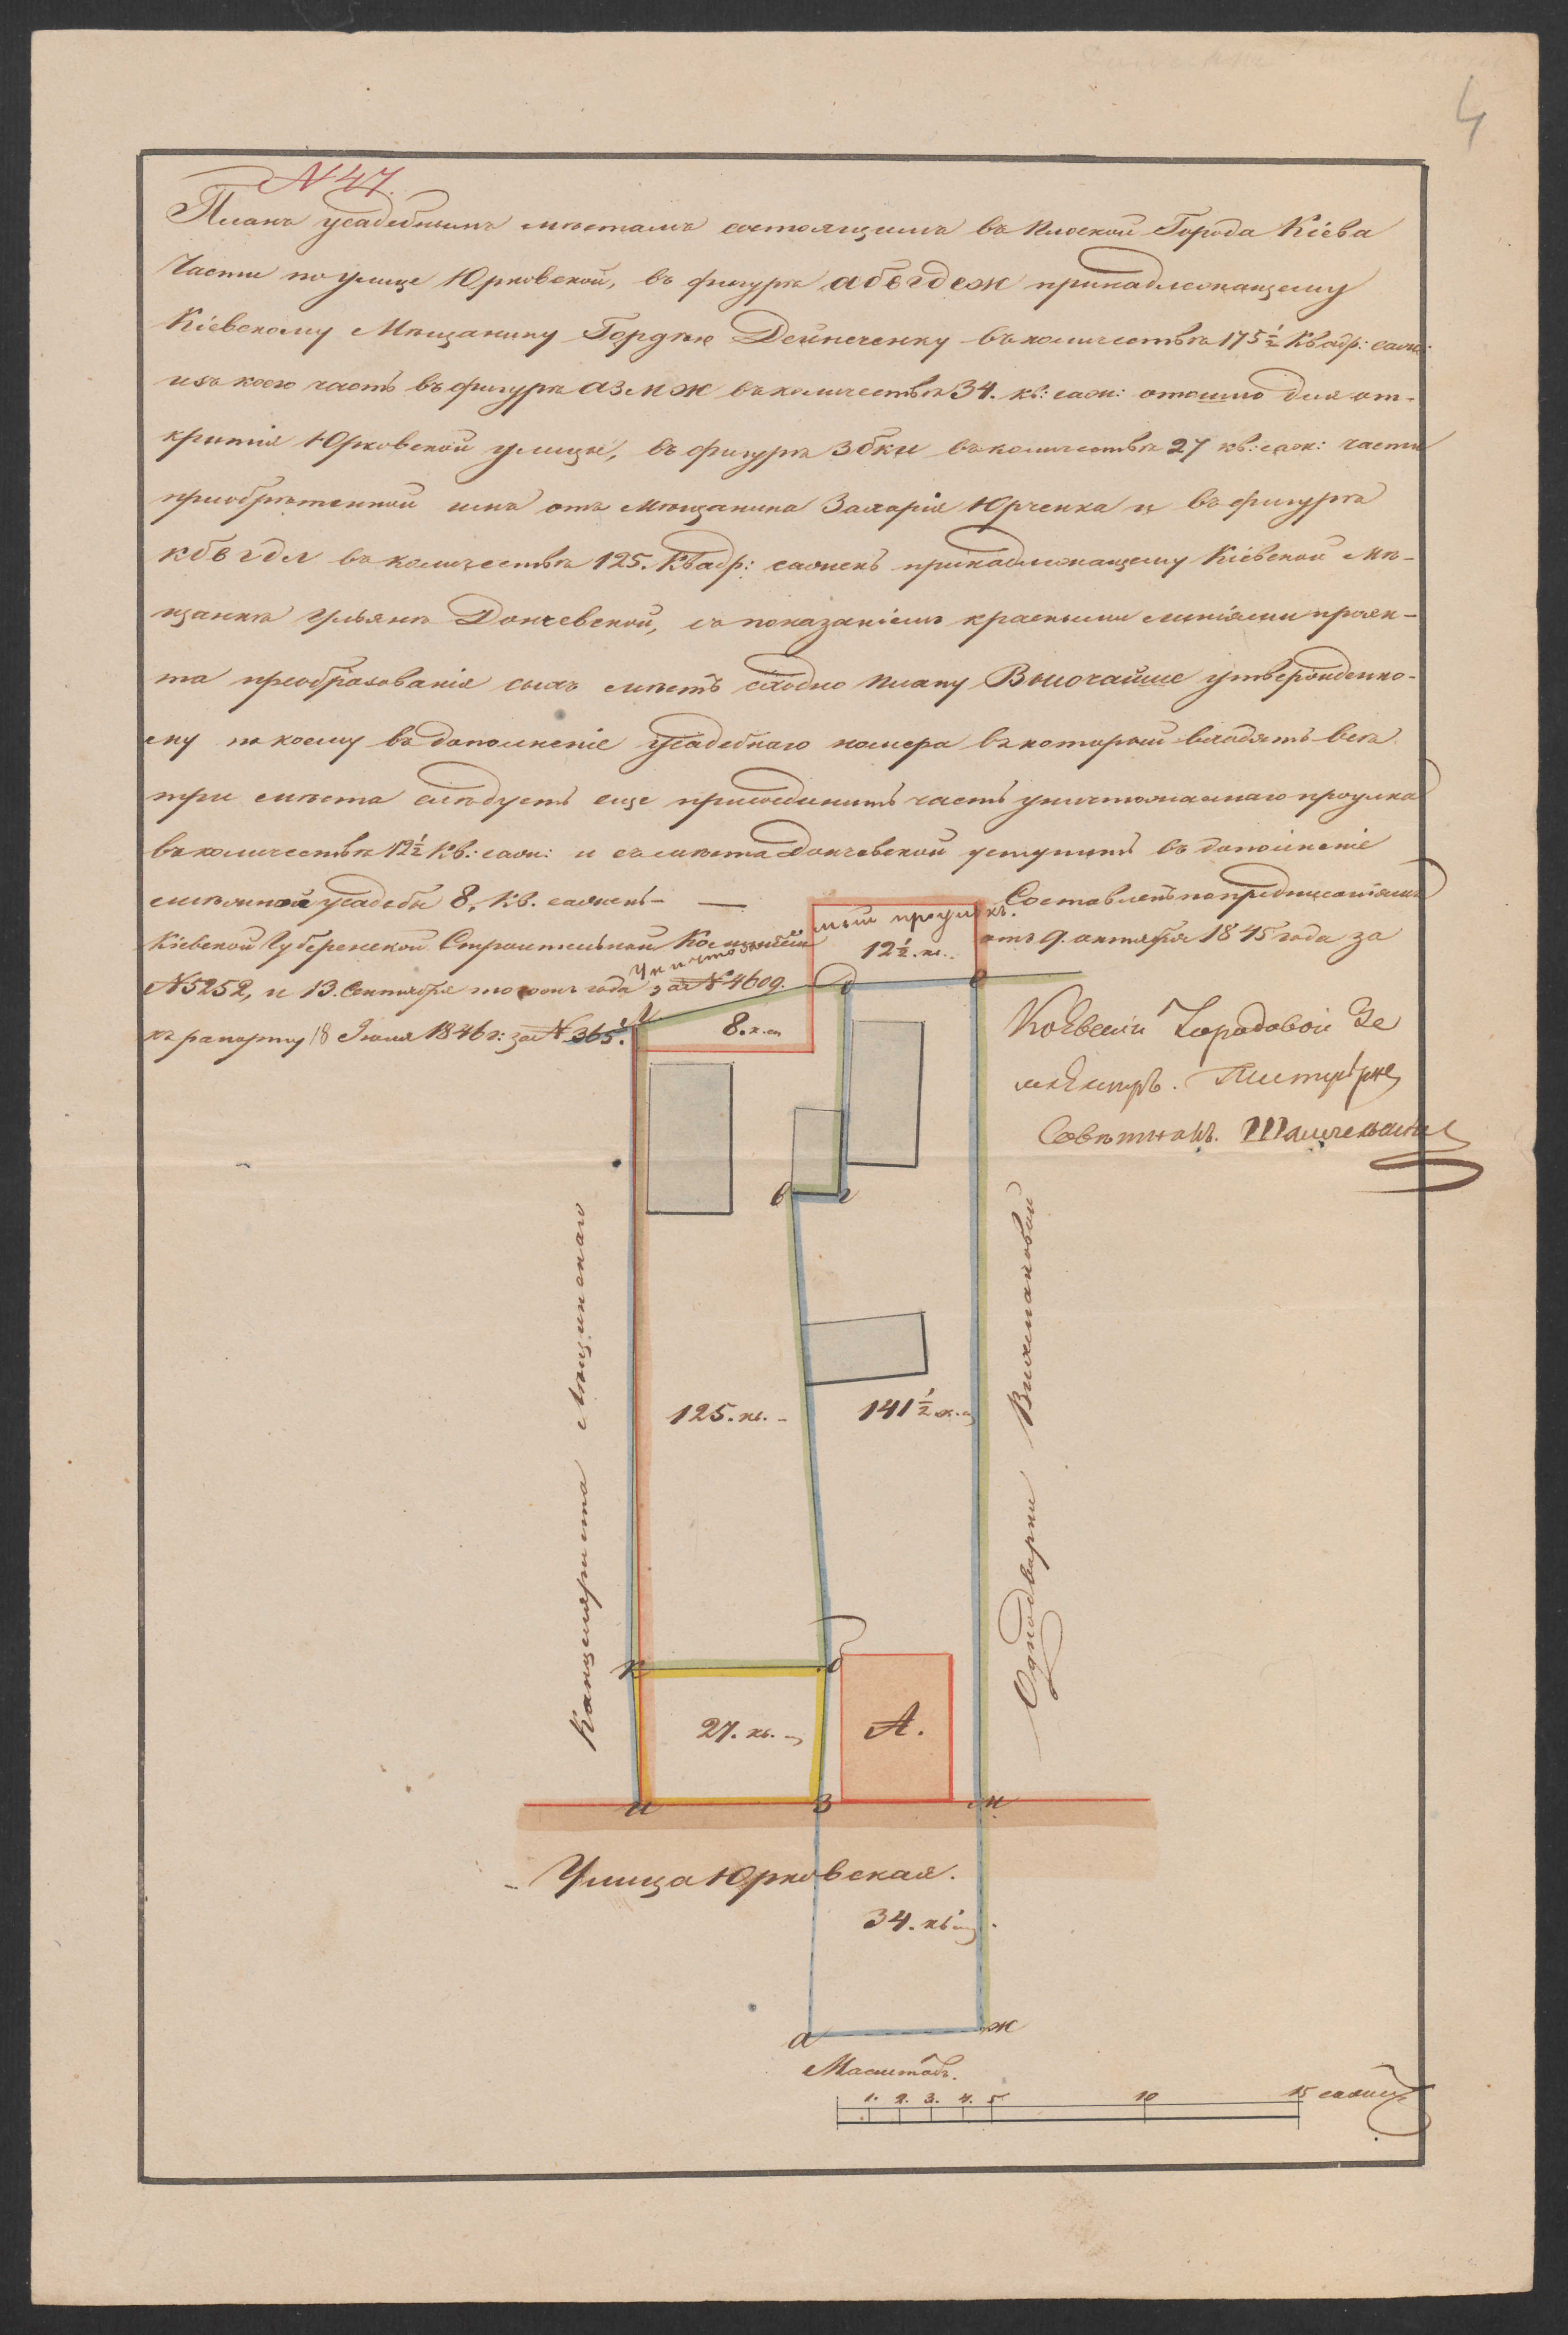 4
N 47.
Планъ усадебнымъ мѣстамъ состоящимъ въ Плоской Города Кіева
Части по улице Юрковской, въ фигурѣ абвгдеж принадлежащему
Кіевскому Мѣщанину Гордѣю Дейнеченку въ количествѣ 175 ½ Квадр: саж:
изъ коего часть въ фигурѣ азмж въ количествѣ 34. кв: саж: отошло для от-
крытія Юрковской улицы, въ фигурѣ збки въ количествѣ 27 кв: саж: части
приобрѣтенной имъ отъ мѣщанина Захарія Юрченка и въ фигурѣ
кбвгдл въ количествѣ 125. Квадр: саженъ принадлежащему Кіевской Мѣ-
щанкѣ Ульянѣ Дончевской, съ показаніемъ красными линіями проэк-
та преобразованія сихъ мѣстъ сходно плану Высочайше утвержденно-
му по коему въ дополненіе усадебнаго номера въ который входятъ всѣ
три мѣста слѣдуетъ еще присоединить часть уничтожаемаго проулка
въ количествѣ 12 ½ Кв: саж: и съ мѣста Дончевской уступить въ дополненіе
смѣжной усадебы 8. Кв. саженъ — Составленъ по предписаніямъ
Кіевской Губернской Строительной Коммисіи отъ 9. октября 1845 года за
N 5252, и 13. Сентября того жъ года за N 4609.
къ рапорту 18 Іюля 1846 г: за N 365.
Уничтожаемый проулокъ.
12 ½. к.
8. к. с.
Кіевскій Городовой Зе
млемѣръ. Титулярне
Совѣтникъ.
д
е
л
в
г
125. кв.
141 ½ к. с
Канцеляриста
Однодворки
к
б
27. кв.
А.
и
з
м
Улица Юрковская.
34. кв.
а
ж
Масштабъ.
1. 2. 3. 4. 5 10 15 сажен